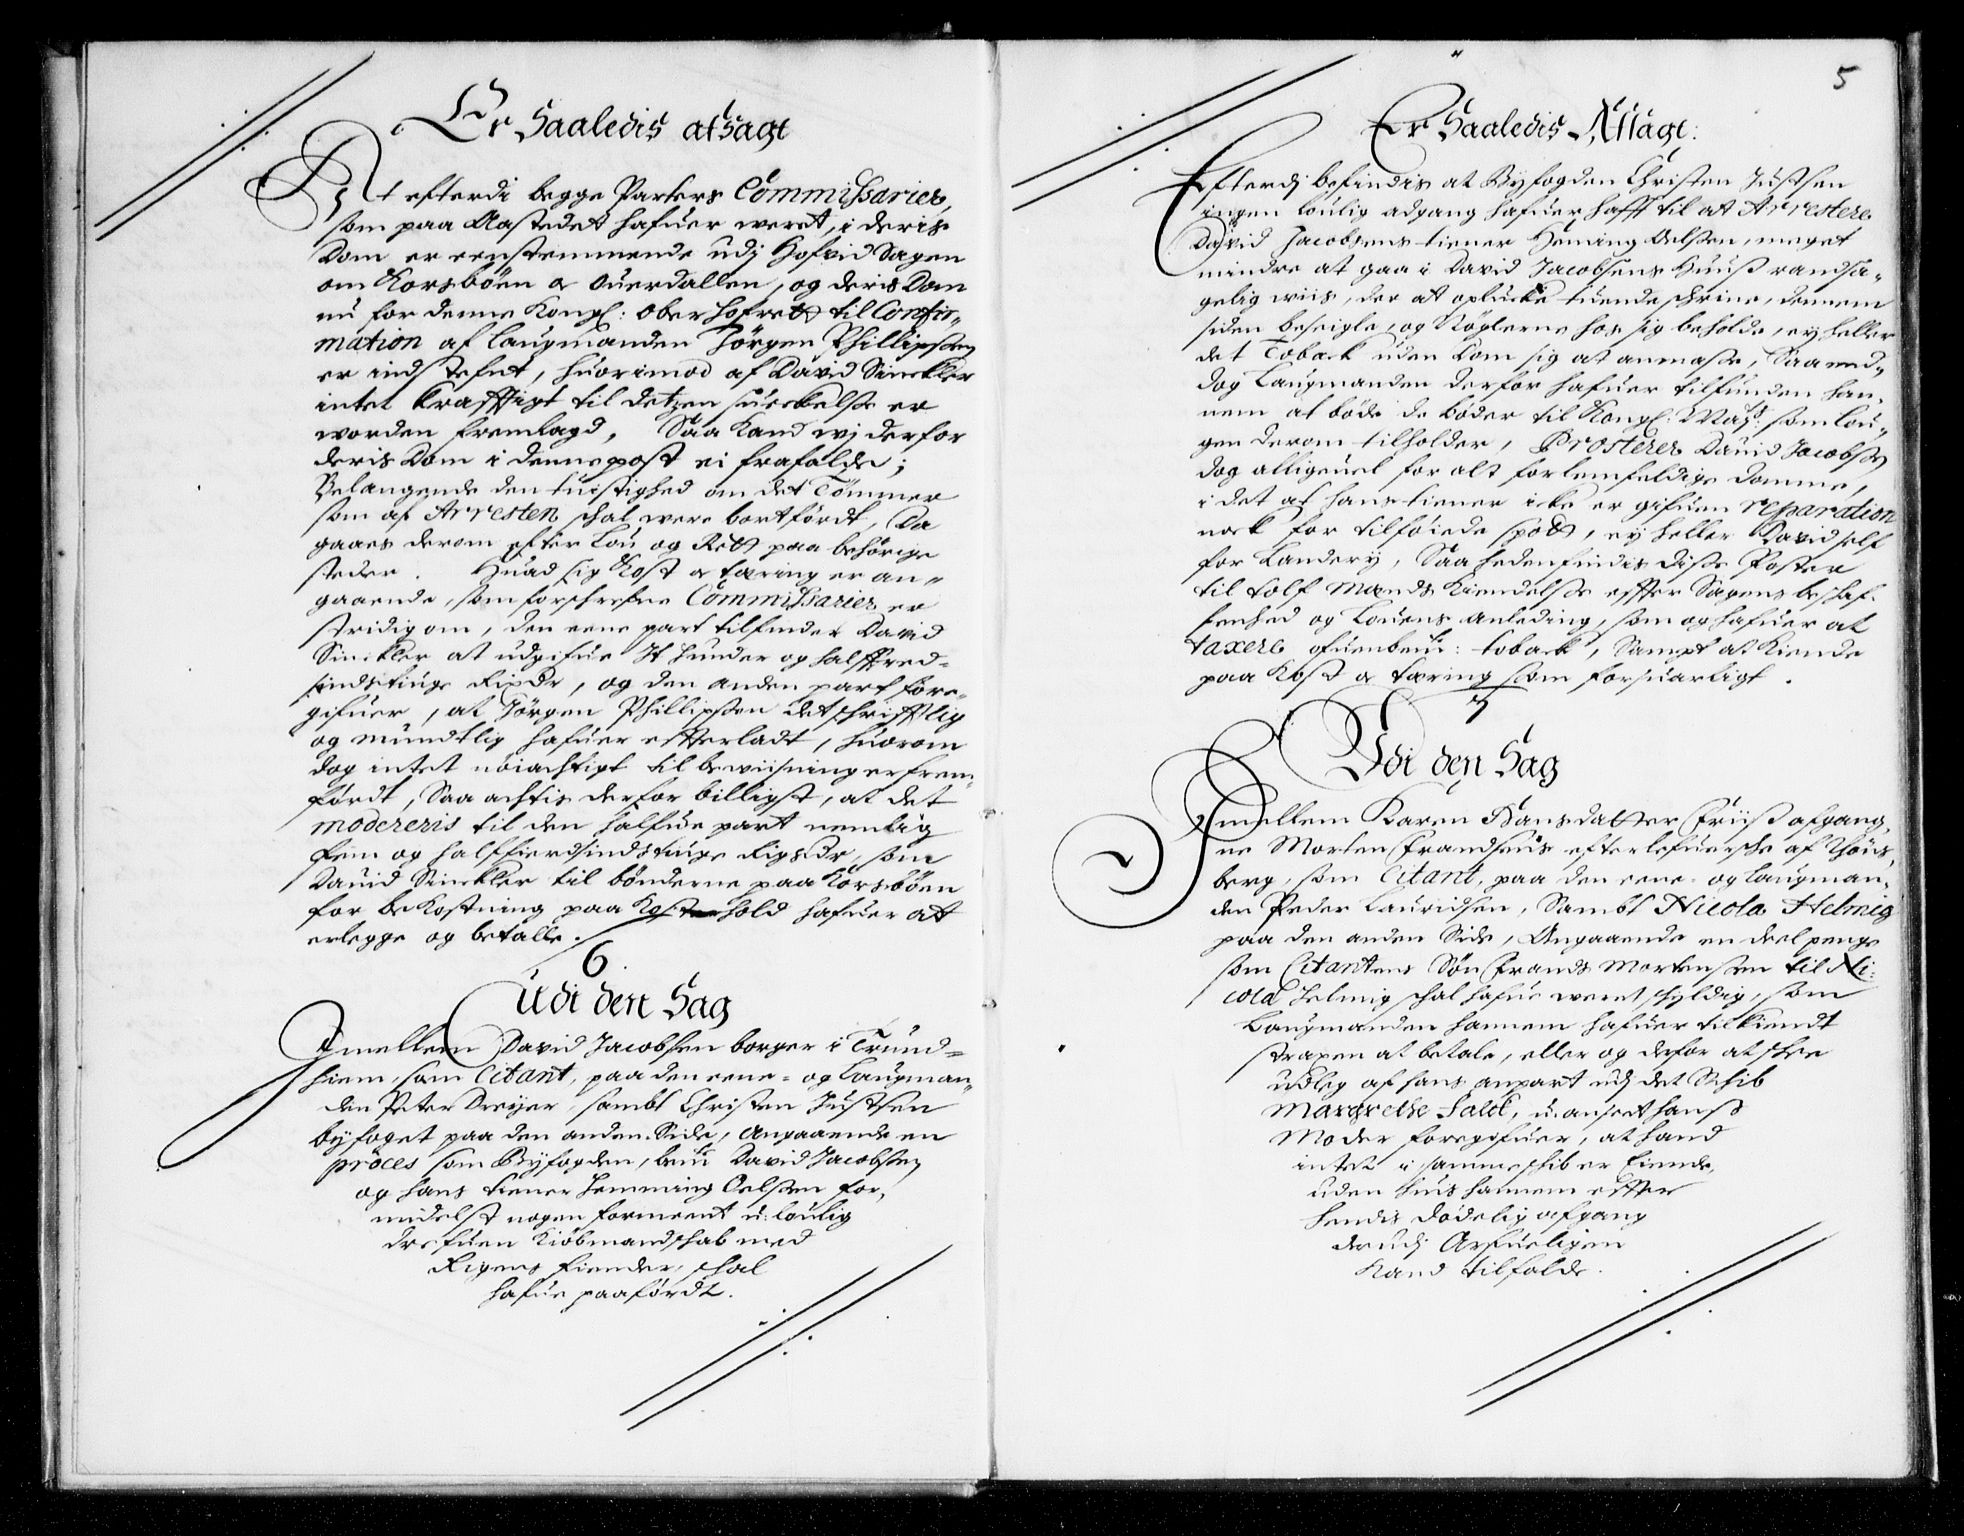 Er Saaledis afsagt
At efterdi begge Parters Commissarier,
som paa Aastedet hafuer weret, i deris
Dom er eenstemmende udj Hofvid Sagen
om Korsböen & Ouerdallen, og deris Dom
nu for denne Kongl: Ober hofrett til Confir-
mation af Laugmanden Jörgen Phillipsen
er indstefnt, huorimod af David Sinckler
intet krafftigt til detzen suechelse er
worden fremlagd, Saa kand wj derfor
deris Dom i denne post ei frafalde;
Belangende den tuistighed om det Tömmer
som af Arresten schal were bortfördt, Da
gaaes derom efter Lou og Rett paa behörige
steder. Huad sig Kost & tæring er an-
gaaende, som forschrefne Commissarier er
stridig om, den eene part tilfinder David
Sinckler at udgifue It hunder og halffred-
sindstiuge Rixdr, og den anden part fore-
gifuer, at Jörgen Phillipsen det schrifftlig
og mundtlig hafuer efterladt, huorom
dog intet noiachtigt til bewiisning er frem-
fördt, Saa achtis derfor billigst, at det
modereris til den halfue part nemlig
fem og halffierdsindstiuge Rigsdr, som
David Sinckler til bönderne paa Korsböen
for bekostning paa Kosthold hafuer at
erlegge og betalle.
6
Udi den Sag
Imellem David Jacobsen borger i Trund-
hiem, som Citant, paa den eene- og Laugman-
den Peter Dreyer, sambt Christen Justsen
byfoget paa den anden Side, angaaende en
proces som Byfogden, bem.te David Jacobsen
og hans tiener Hemming Oelsen for-
midelst nogen formeent u-loulig
drefuen Kiöbmandschab med
Rigens fiender, schal
hafue paafördt.
5
Er Saaledis Affsagt:
Efterdj befindis at Byfogden Christen Justsen
ingen loulig adgang hafuer hafft til at Arrestere
David Jacobsens tiener Heming Oelsen, meget
mindre at gaa i David Jacobsens Huus randsa-
gelig wiis, der at oplucke tuende schrine, dennem
siden beseigle, og Nöglerne hos sig beholde, ey heller
det Toback uden Dom sig at anmasse, Saa end-
dog Laugmanden derfor hafuer tilfunden han-
nem at böde de böder til Kongl: May.ts som Lou-
gen derom tilholder, Prosterer David Jacobsen
dog alligeuel for alt forlemfeldige Domme,
i det at hans tiener icke er gifuen reparation
nock for tilföiede spott, ey heller David self
for Landery, Saa hedenfindis disse Poster
til tolf Mænds Kiendelse effter Sagens beschaf-
fenhed og Louens anleding, som og hafuer at
taxere ofuenbem.te: toback, Sampt at Kiende
paa Kost & tæring som forsuarligt.
7
Udi den Sag
Imellem Karen Hansdatter Friis afgang-
ne Morten Frandsens efterlefuersche af Töns-
berg, som Citant, paa den eene- og Laugman-
den Peder Lauridsen, Sambt Nicola Helmig
paa den anden Side, Angaaende en deel penge
som Citantens Sön Frands Mortensen til Ni-
cola Helmig schal hafue weret schyldig, som
Laugmanden hannem hafuer tilkiendt
strapen at betale, eller og derfor at schee
udleg af hans anpart udj det Schib
Margrethe Falck, u-anseet hans
Moder foregifuer, at hand
intet i samme schib er Eiende,
uden huis hannem effter
hendis Dödelig afgang
der udj Arfueligen
Kand tilfalde.